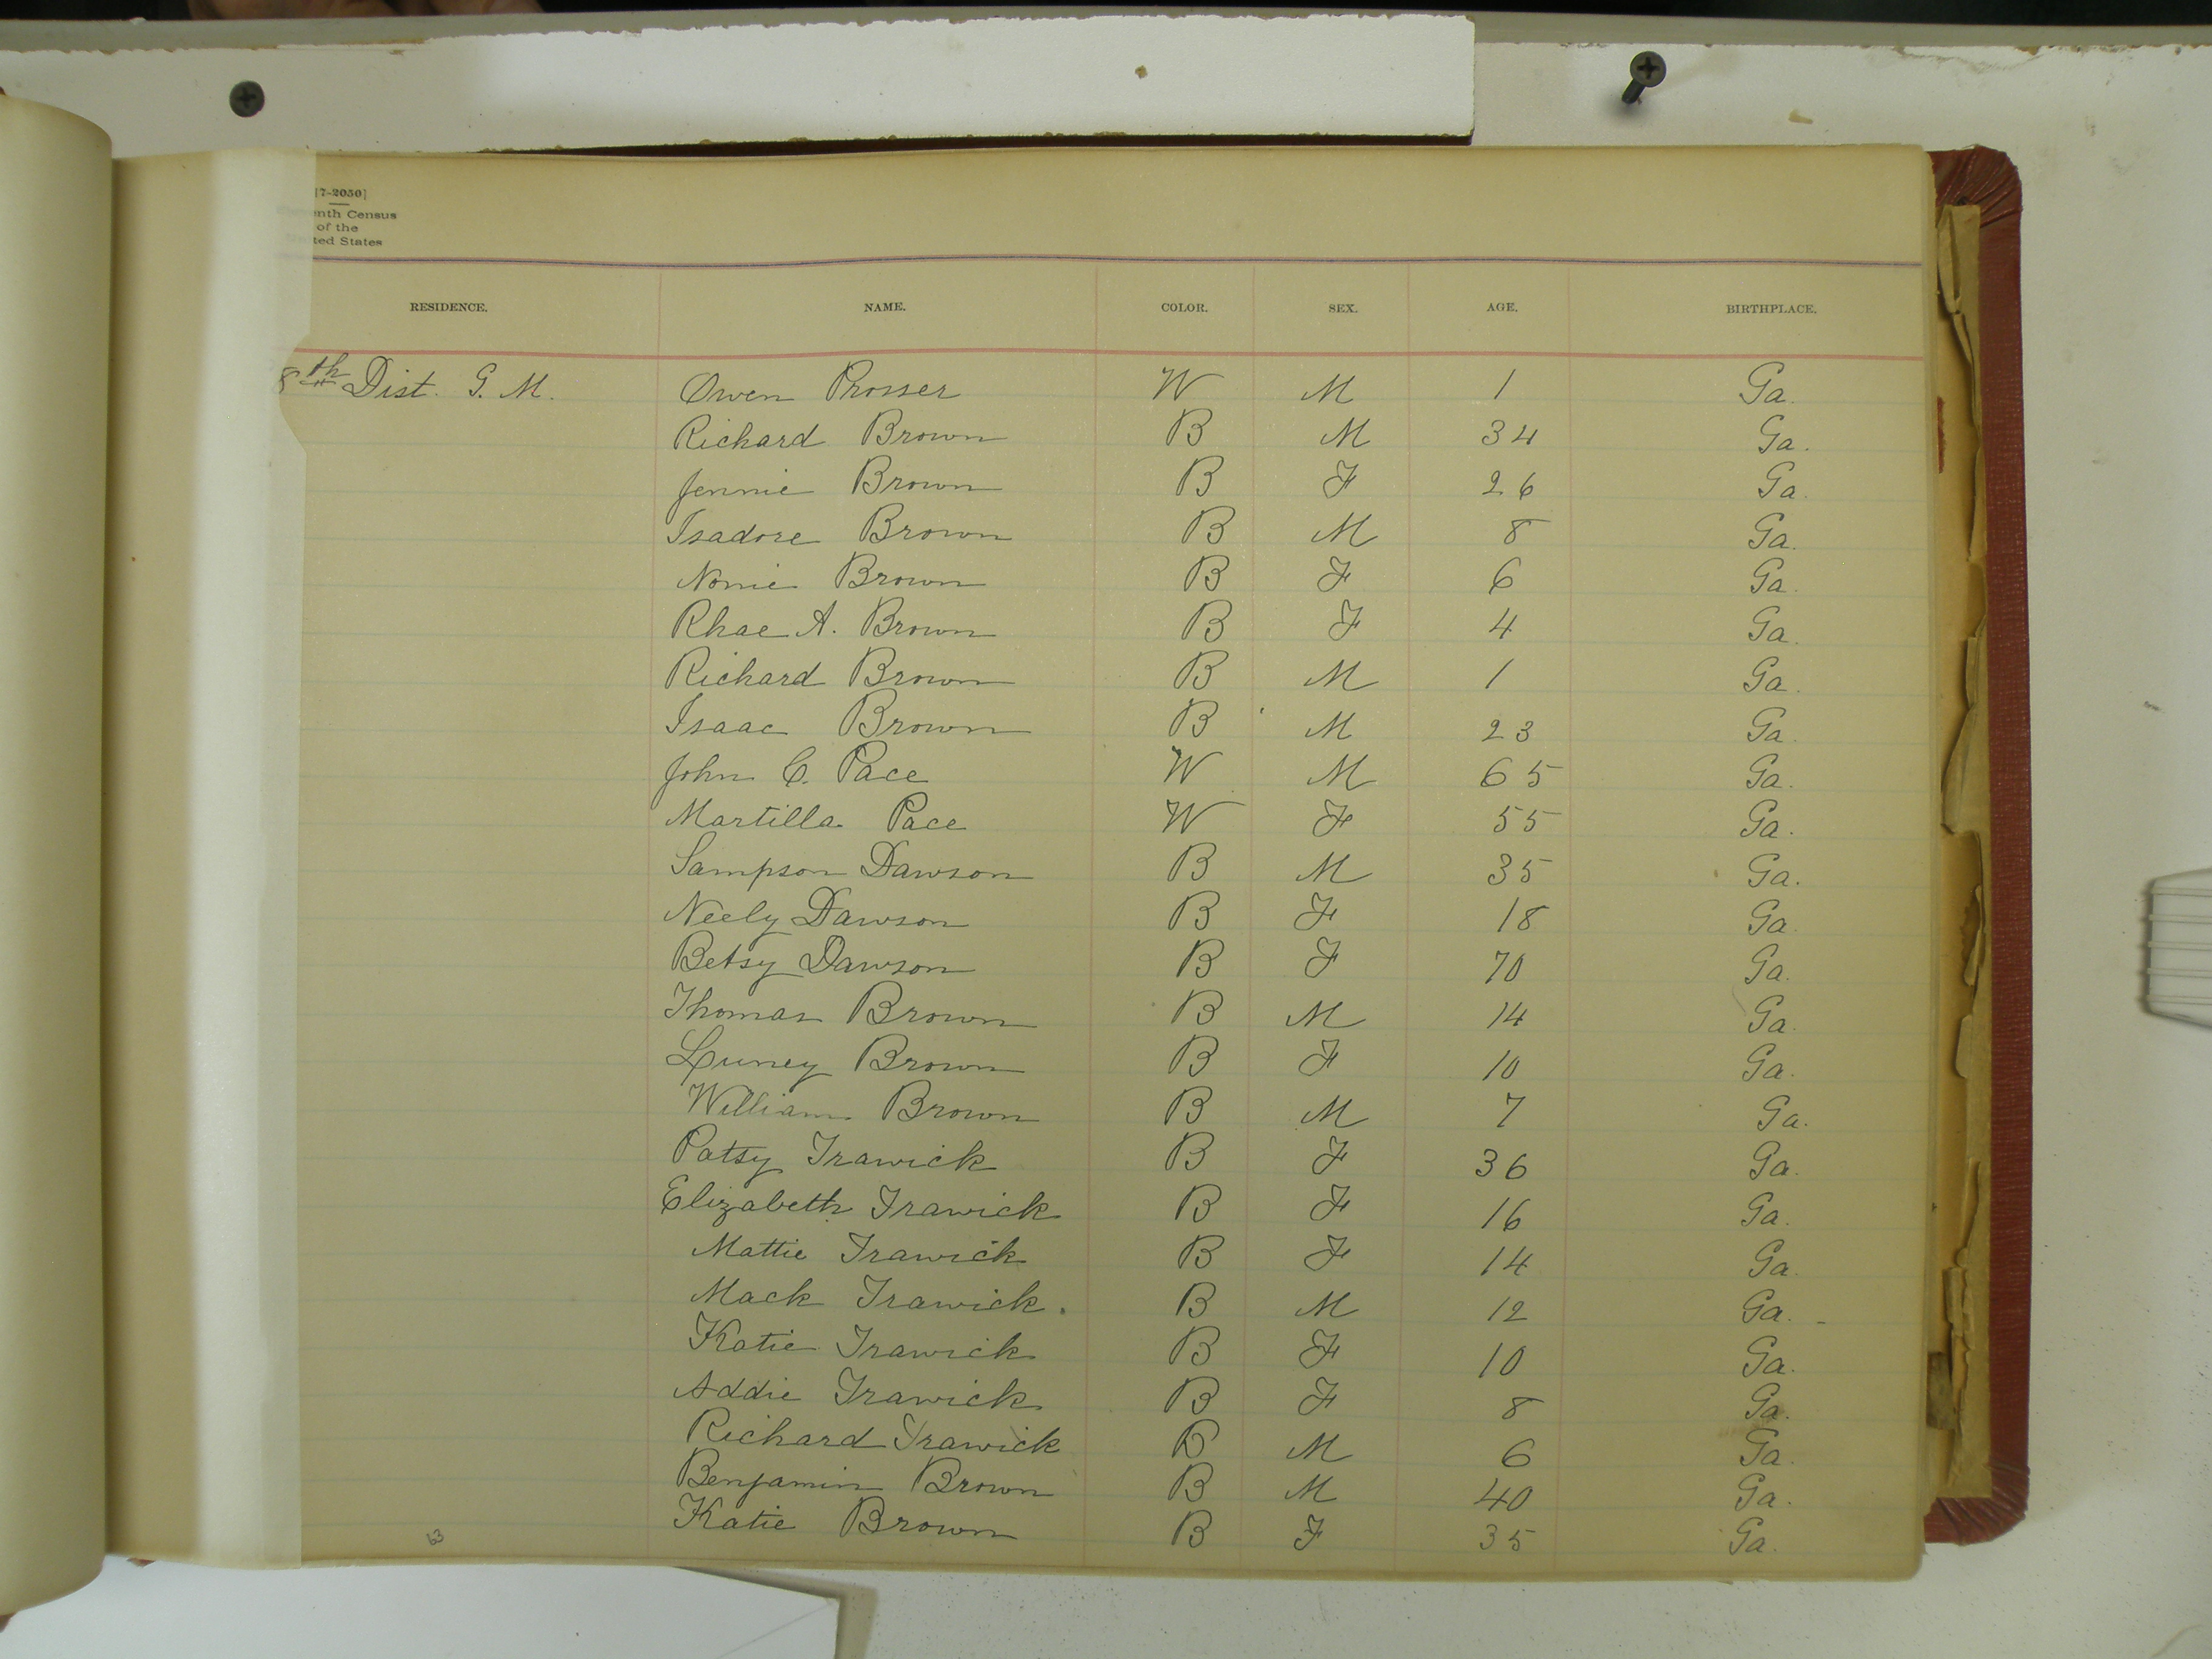 [7-2050]
nth Census
of the
ted States
RESIDENCE. NAME. COLOR. SEX. AGE. BIRTHPLACE.
8th Dist. G. M. Owen Prosser W M 1 Ga.
Richard Brown B M 34 Ga.
Jennie Brown B F 26 Ga.
Isadore Brown B M 8 Ga.
Nomie Brown B F 6 Ga.
Rhae A. Brown B F 4 Ga.
Richard Brown B M 1 Ga.
Isaac Brown B M 23 Ga.
John C. Pace W M 65 Ga.
Martilla Pace W F 55 Ga.
Sampson Dawson B M 35 Ga.
Neely Dawson B F 18 Ga.
Betsy Dawson B F 70 Ga.
Thomas Brown B M 14 Ga.
Luney Brown B F 10 Ga.
William Brown B M 7 Ga.
Patsy Trawick B F 36 Ga.
Elizabeth Trawick B F 16 Ga.
Mattie Trawick B F 14 Ga.
Mack Trawick. B M 12 Ga.
Katie Trawick B F 10 Ga.
Addie Trawick B F 8 Ga.
Richard Trawick B M 6 Ga.
Benjamin Brown B M 40 Ga.
Katie Brown B F 35 Ga.
63